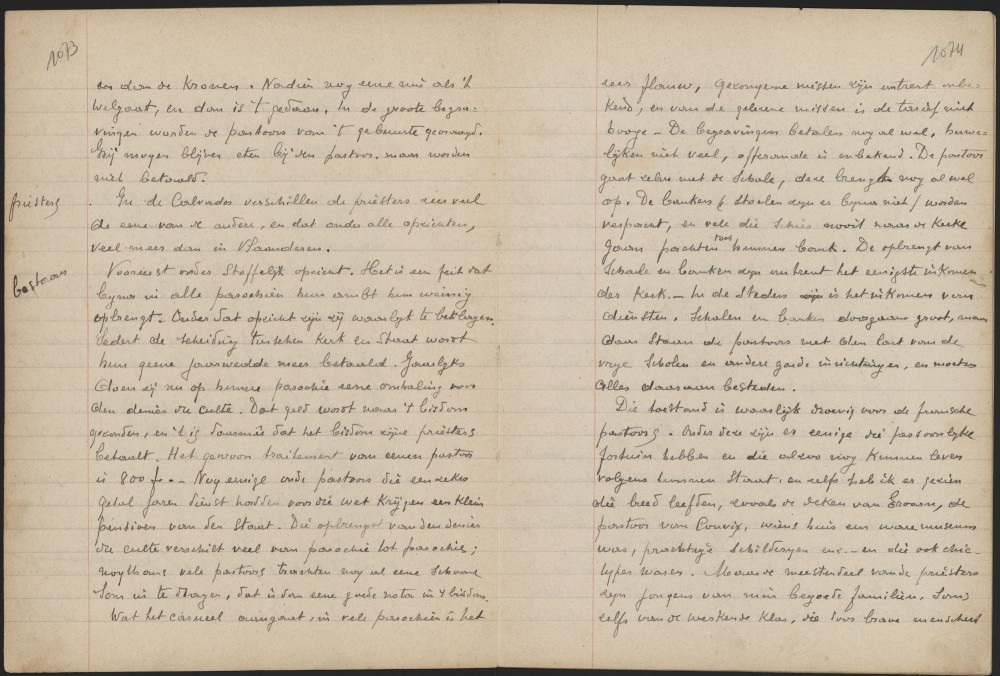 1073
en dan de Kronen. Nadien nog eene mis als 't
welgaat, en dan is 't gedaan. In de groote begra-
vingen worden de pastoors van 't gebuurte gevraagd.
Zij mogen blijven eten bij den pastoor, maar worden
niet betaald.
priesters
In de Calvados verschillen de priesters zeer veel
de eene van de andere, en dat onder alle opzichten,
veel meer dan in Vlaanderen.
bestaan
Vooreerst onder stoffelijk opzicht. Het is een feit dat
bijna in alle parochien hun ambt hun weinig
opbrengt. Onder dat opzicht zijn zij waarlijk te beklagen.
Sedert de scheiding tusschen Kerk en Staat wordt
hun geene jaarwedde meer betaald. Jaarlijks
doen zij nu op hunne parochie eene omhaling voor
den denier du culte. Dat geld wordt naar 't bisdom
gezonden, en 't is daarmee dat het bisdom zijne priesters
betaalt. Het gewoon traitement van eenen pastoor
is 800 fr. - Nog eenige oude pastoors die een zeker
getal jaren dienst hadden voor die wet krijgen een klein
pensioen van den Staat. Die opbrengst van den denier
du culte verschilt veel van parochie tot parochie;
nogthans vele pastoors trachten nog al eene schoone
som in te dragen, dat is dan eene goede nota in 't bisdom.
Wat het casueel aangaat, in vele parochien is het
1074
zeer flauw, gezongene missen zijn omtrent onbe-
kend, en van de gelezene missen is de tarief niet
hooge - De begravingen betalen nog al wel, huwe-
lijken niet veel, offerande is onbekend. De pastoor
gaat zelve met de schale, deze brengt nog al wel
op. De banken & stoelen zijn er bijna niet / worden
verpacht, en vele die schier nooit naar de kerke
gaan pachten toch hunnen bank. De opbrengt van
schale en banken zijn omtrent het eenigste inkomen
der Kerk. - In de Steden is het inkomen van
diensten, schalen en banken doorgaans groot, maar
daar staan de pastoors met den last van de
vrije scholen en andere goede inrichtingen, en moeten
alles daaraan besteden.
Die toestand is waarlijk droevig voor de fransche
pastoors. Onder deze zijn er eenige die persoonlijke
fortuin hebben en die alzoo nog kunnen leven
volgens hunnen Staat, en zelfs heb ik er gezien
die breed leefden, zooals de deken van Evrecy, de
pastoor van Couvix, wiens huis een ware museum
was, prachtige schilderijen enz. - en die ook chic-
types waren. Maar de meesterdeel van de priesters
zijn jongens van min begoede familien, soms
zelfs van de werkende klas, die door brave menschen